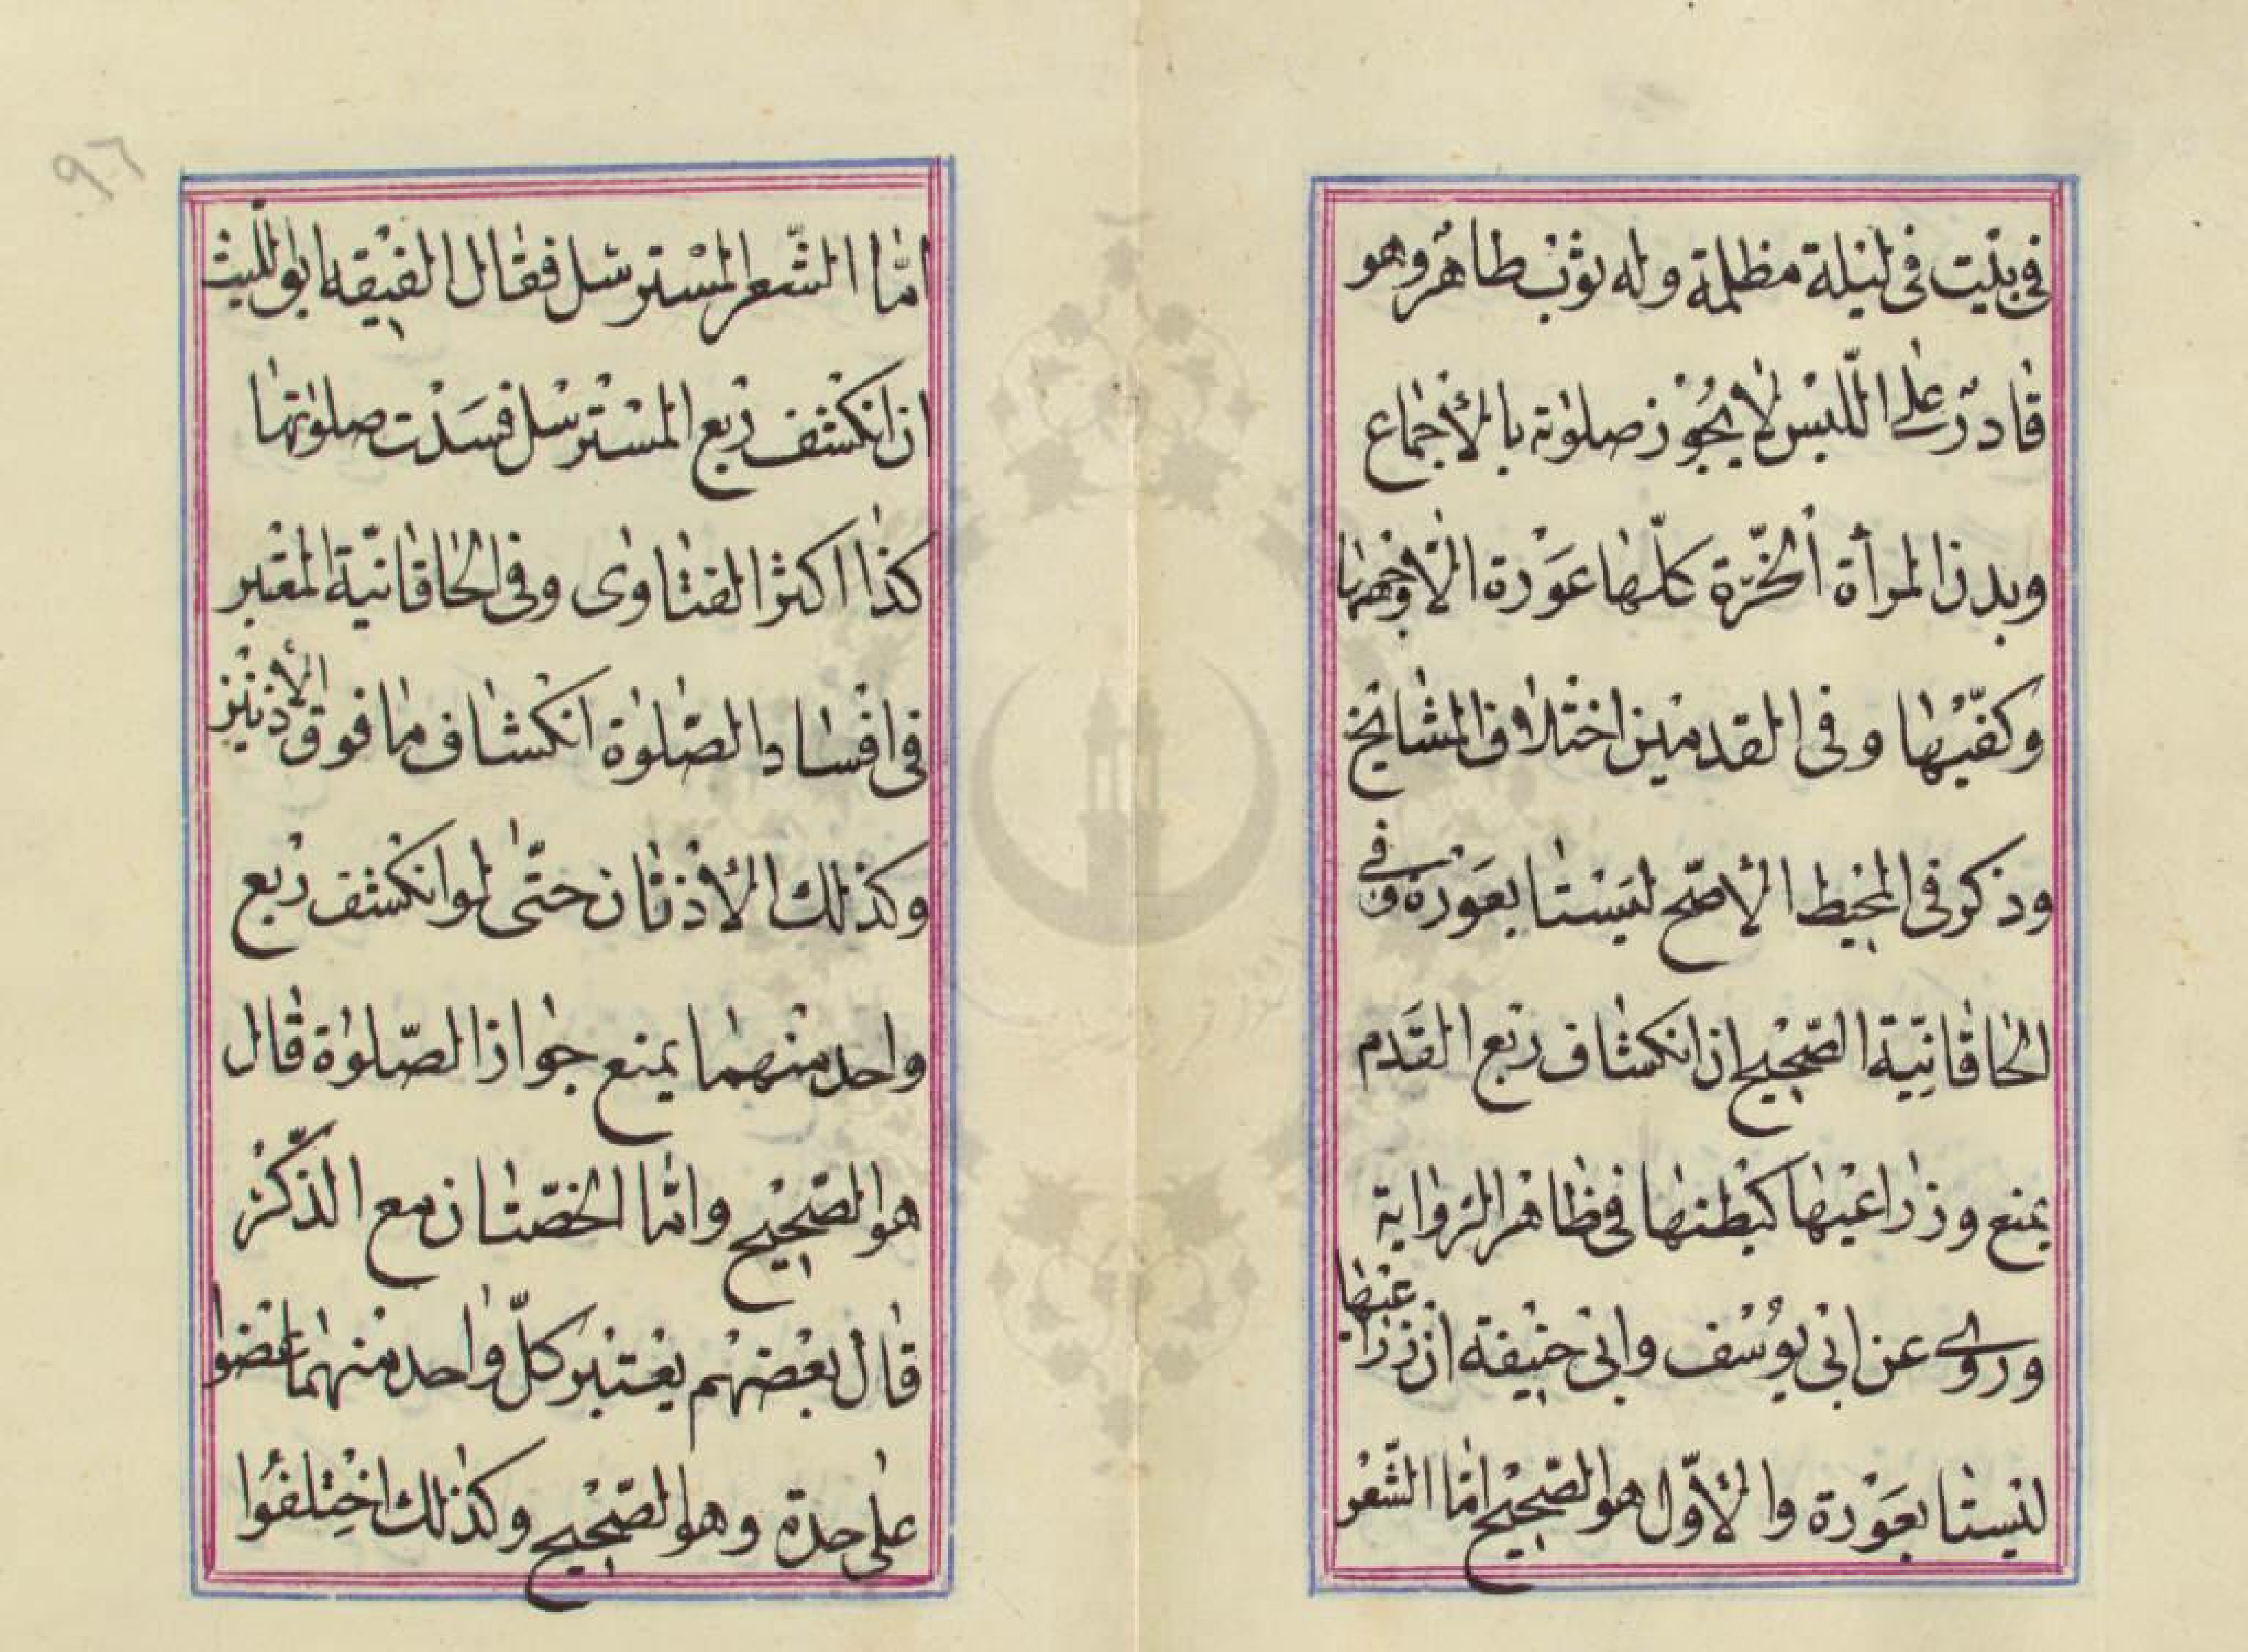 فى بيت فى ليلة مظلمة وله ثوب طاهر وهو
قادر على اللبس لا يجوز صلوته بالأجماع
وبدن المرأة الحرّة كلّها عورة الّا وجهها
وكفّيها وفى القدمين اختلاف المشايخ
وذكر فى المحيط الأصّح ليستا بعورة وفى
الخاقانيّة الصّحيح ان انكشاف ربع القدم
يمنع وذراعيها كبطنها فى ظاهر الرّواية
وروى عن ابى يوسف وابى حنيفة ان ذراعيها
ليستا بعورة والأوّل هو الصّحيح امّا الشّعر
امّا الشّعر المسترسل فقال الفقيه ابو اللّيث
ان انكشف ربع المسترسل فسدت صلوتها
كذا اكثر الفتاوى وفى الخاقانيّة المعتبر
فى افساد الصّلوة انكشاف ما فوق الأذنين
وكذلك الأذنان حتّى لو انكشف ربع
واحد منهما يمنع جواز الصّلوة قال
هو الصّحيح وامّا الخصّتان مع الذّكر
قال بعضهم يعتبر كلّ واحد منهما عضوا
على حدة وهو الصّحيح وكذلك اختلفوا